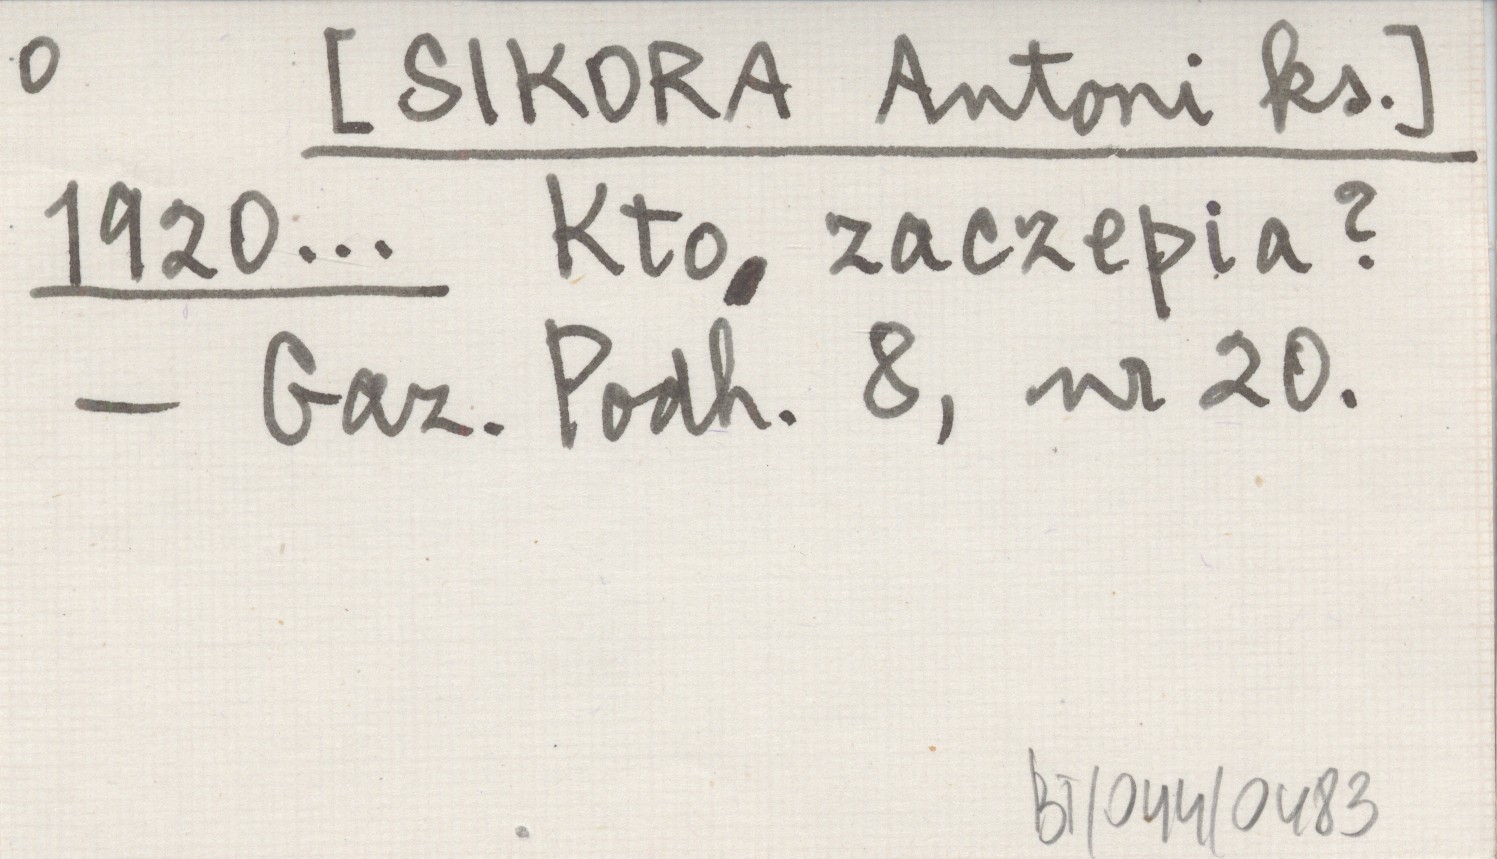 o [SIKORA Antoni ks.]
1920... Kto zaczepia?
— Gaz. Podh. 8, nr 20.
BT/044/0483